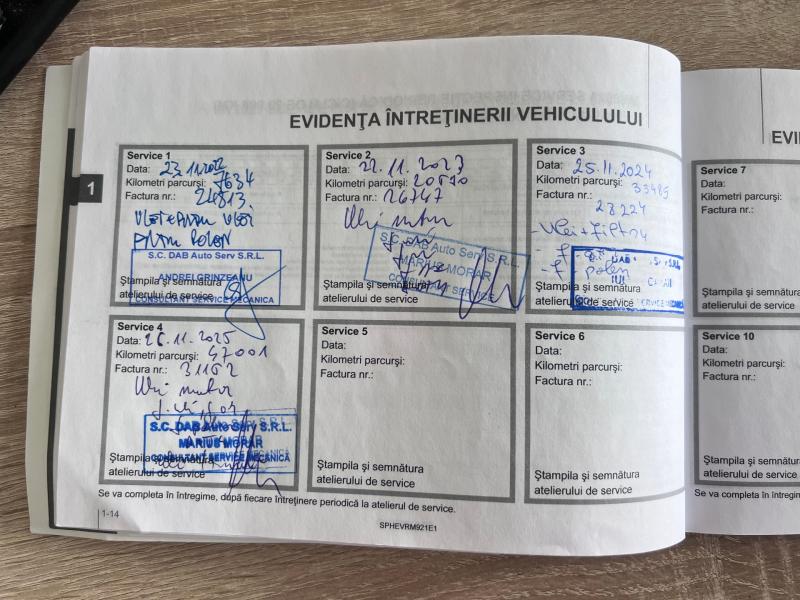 EVIDENŢA ÎNTREŢINERII VEHICULULUI
1
Service 1
Data: 23.11.2022
Kilometri parcurşi: 7634
Factura nr.: 24813.
S.C. DAB Auto Serv S.R.L.
ANDREI GRINZEANU
CONSULTANT SERVICE MECANICA
Ştampila şi semnătura
atelierului de service
Service 2
Data: 22.11.2023
Kilometri parcurşi:
Factura nr.: 26747
Ulei motor
S.C. DAB Auto Serv S.R.L.
MARIUS MORAR
CONSULTANT SERVICE
Ştampila şi semnătura
atelierului de service
Service 3
Data: 25.11.2024
Kilometri parcurşi: 33485
Factura nr.: 28224
- Ulei + Filtru
- f.
- f. polen
Ştampila şi semnătura
atelierului de service
Service 4
Data: 26.11.2025
Kilometri parcurşi: 47001
Factura nr.: 31152
Ulei motor
S.C. DAB Auto Serv S.R.L.
MARIUS MORAR
CONSULTANT SERVICE MECANICĂ
Ştampila şi semnătura
atelierului de service
Service 5
Data:
Kilometri parcurşi:
Factura nr.:
Ştampila şi semnătura
atelierului de service
Service 6
Data:
Kilometri parcurşi:
Factura nr.:
Ştampila şi semnătura
atelierului de service
Se va completa în întregime, după fiecare întreţinere periodică la atelierul de service.
1-14
SPHEVRM921E1
EVI
Service 7
Data:
Kilometri parcurşi:
Factura nr.:
Ştampila şi semnătura
atelierului de service
Service 10
Data:
Kilometri parcurşi:
Factura nr.:
Ştampila şi semnătura
atelierului de service
Se va completa în întregime